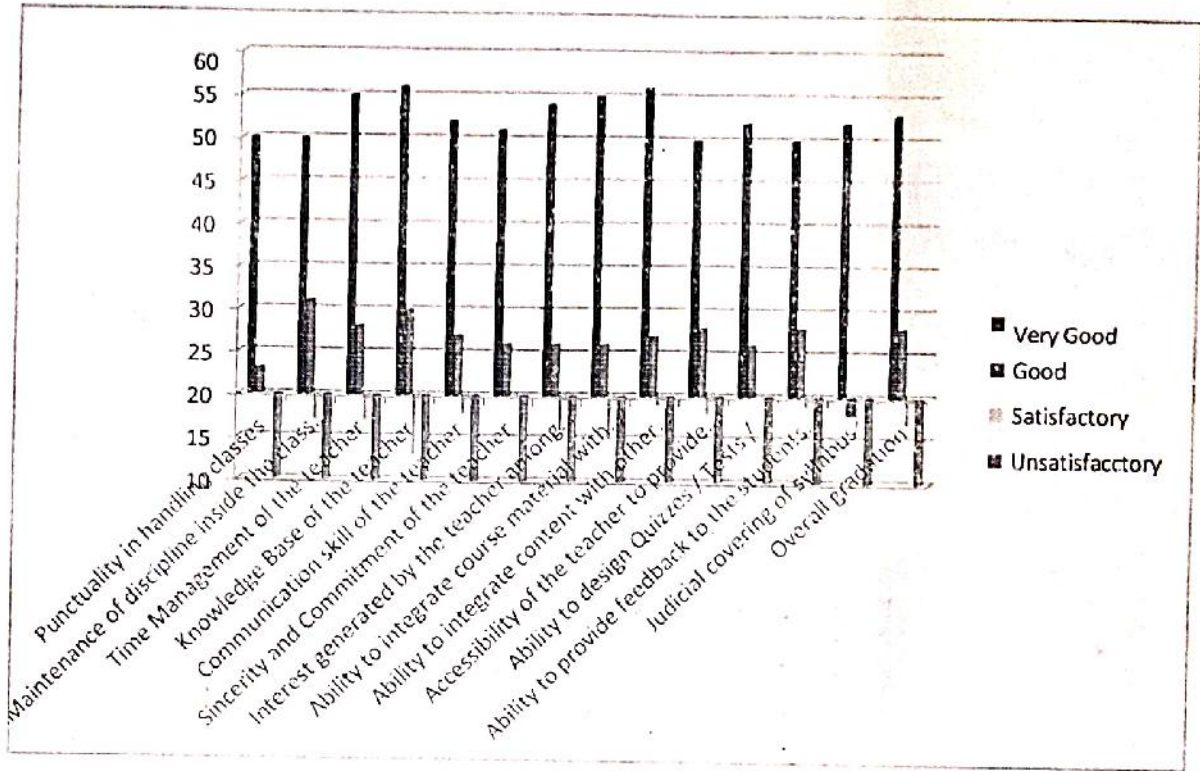 60
55
50
45
40
35
30
25
20
15
10
Punctuality in handling classes
Maintenance of discipline inside the class
Time Management of the teacher
Knowledge Base of the teacher
Communication skill of the teacher
Sincerity and Commitment of the teacher
Interest generated by the teacher among
Ability to integrate course material with
Ability to integrate content with other
Accessibility of the teacher to provide
Ability to design Quizzes / Tests /
Ability to provide feedback to the students
Judicial covering of syllabus
Overall gradation
Very Good
Good
Satisfactory
Unsatisfacctory